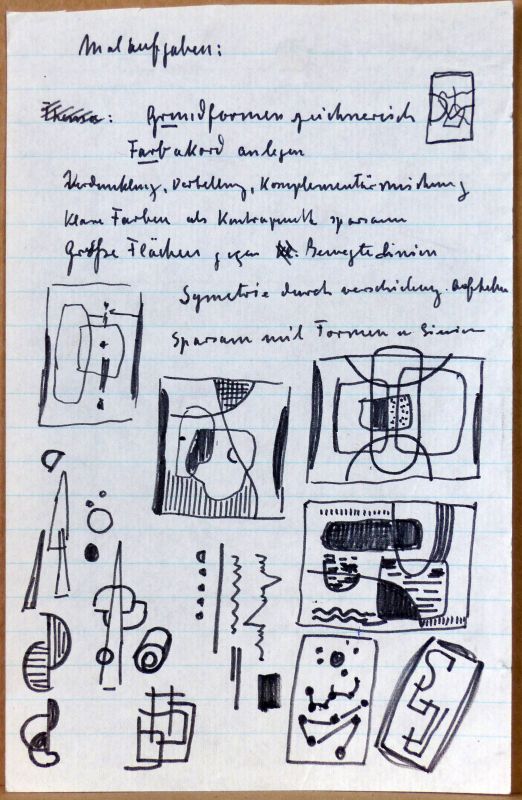 Malaufgaben:
: Grundformen zeichnerisch
Farbakord anlegen
Verdunklung, Verhellung, Komplementärmischung
Klare Farben als Kontrapunkt sparsam
Große Flächen gegen Bewegte Linien
Symetrie durch verschiebung aufheben
Sparsam mit Formen u Linien